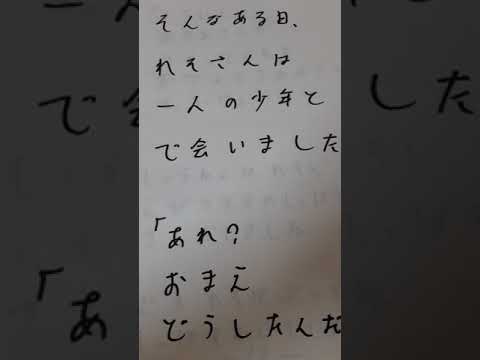 そんなある日、
れそさんは
一人の少年と
で会いました
「あれ?
おまえ
どうしたんだ